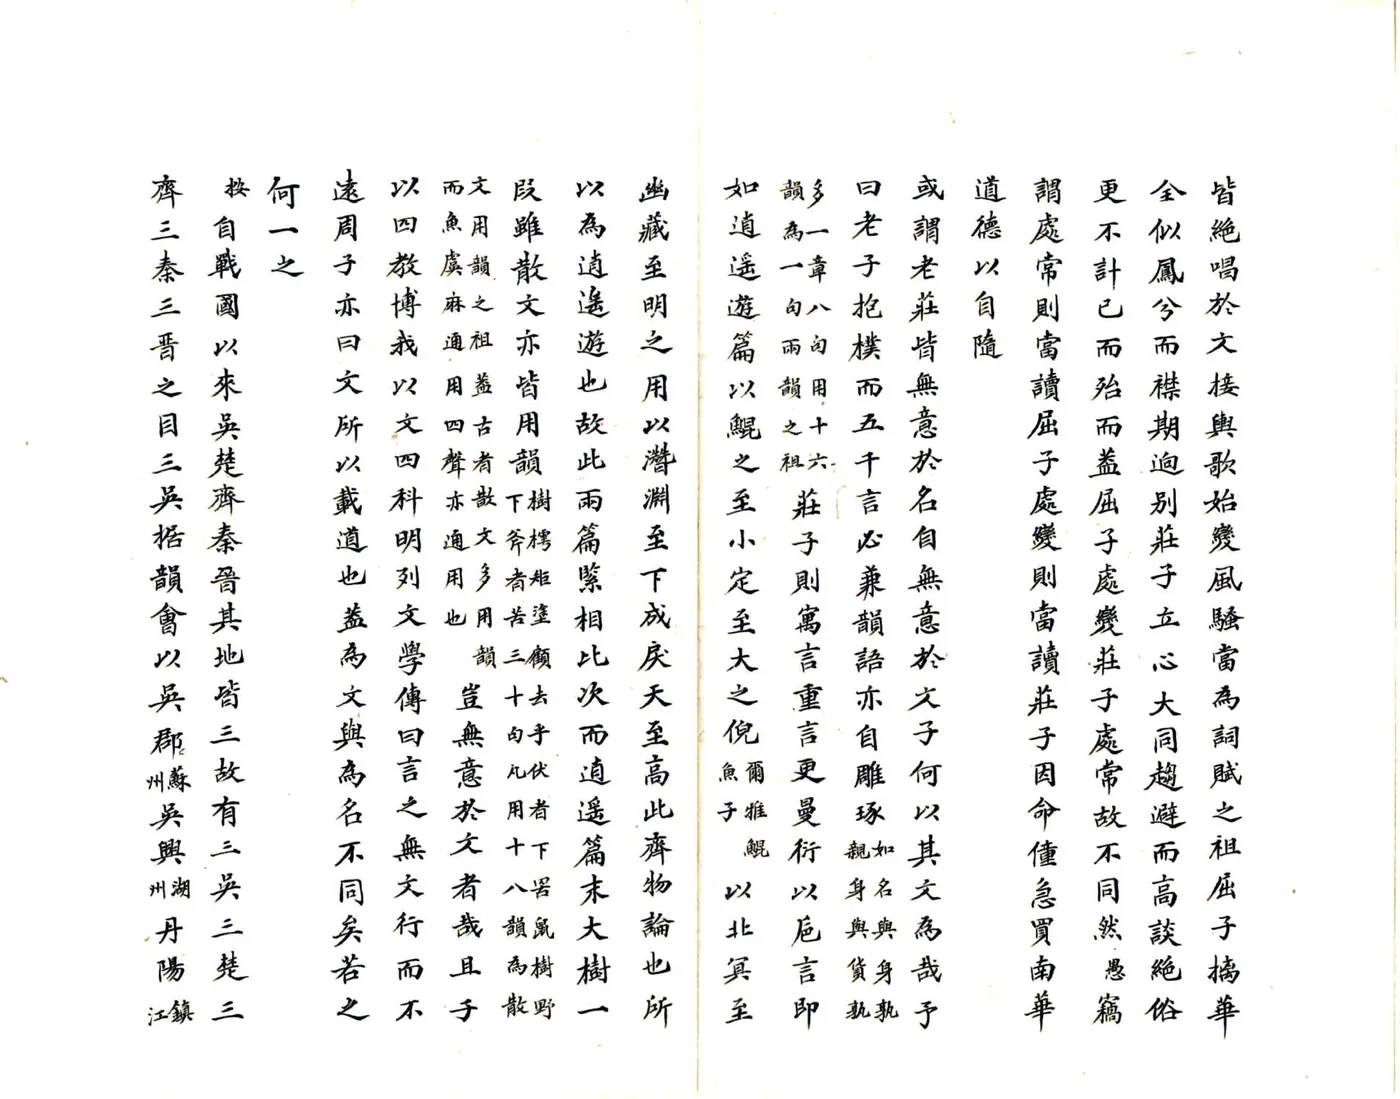 皆絕唱於文接輿歌始變風騷當為詞賦之祖屈子摛華
全似鳳兮而襟期逈別莊子立心大同趨避而高談絕俗
更不計已而殆而蓋屈子處變莊子處常故不同然愚竊
謂處常則當讀屈子處變則當讀莊子因命僮急買南華
道德以自隨
或謂老莊皆無意於名自無意於文子何以其文為哉予
曰老子抱樸而五千言必兼韻語亦自雕琢如名與身孰親身與貨孰
多一章八句用十六韻為一句兩韻之祖莊子則寓言重言更曼衍以巵言即
如逍遥遊篇以鯤之至小定至大之倪爾雅鯤魚子以北冥至
幽藏至明之用以灊淵至下成戾天至高此齊物論也所
以為逍遥遊也故此兩篇緊相比次而逍遥篇末大樹一
段雖散文亦皆用韻樹樗矩塗顧去乎伏者下罟鼠樹野下斧者苦三十句凡用十八韻為散
文用韻之祖蓋古者散文多用韻而魚虞麻通用四聲亦通用也豈無意於文者哉且子
以四教博我以文四科明列文學傳曰言之無文行而不
遠周子亦曰文所以載道也蓋為文與為名不同矣若之
何一之
按自戰國以來吳楚齊秦晉其地皆三故有三吳三楚三
齊三秦三晉之目三吳据韻會以吳郡蘇州吳興湖州丹陽鎮江